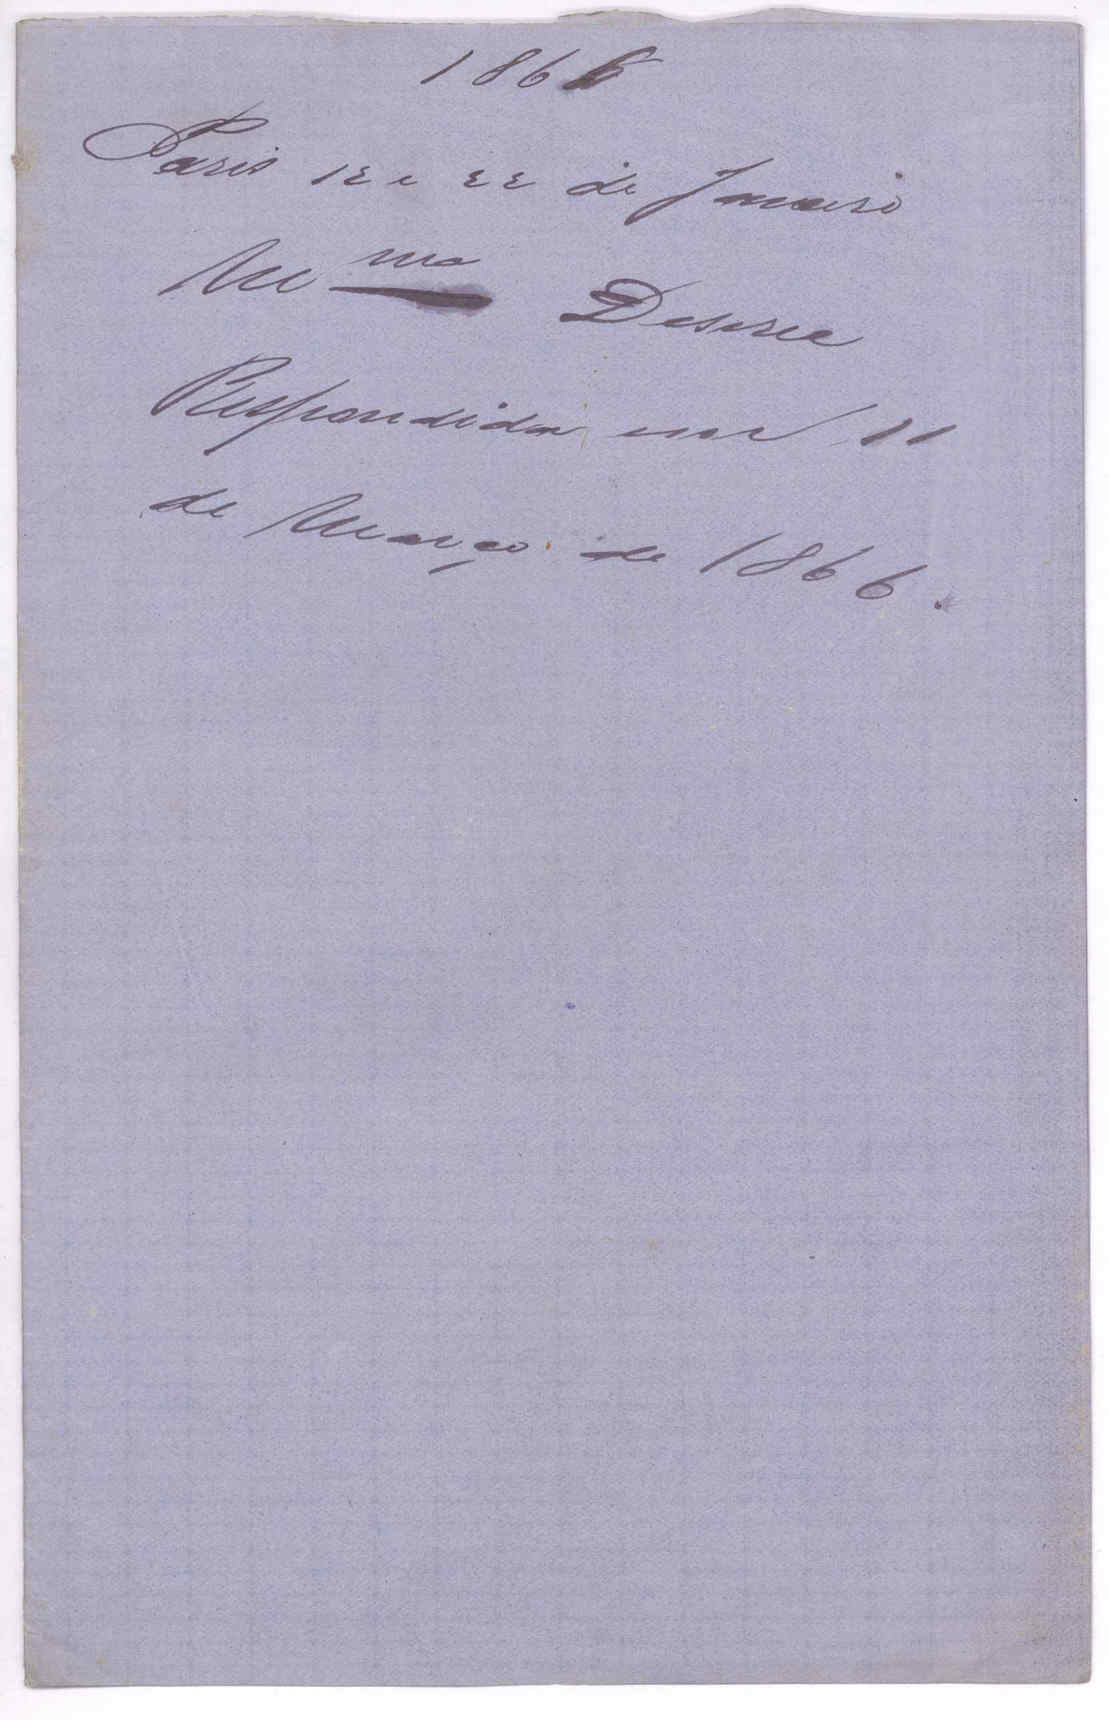 1866
Paris 12 e 22 de Janeiro
Mme Deseree
Respondida em 11
de Março de 1866.